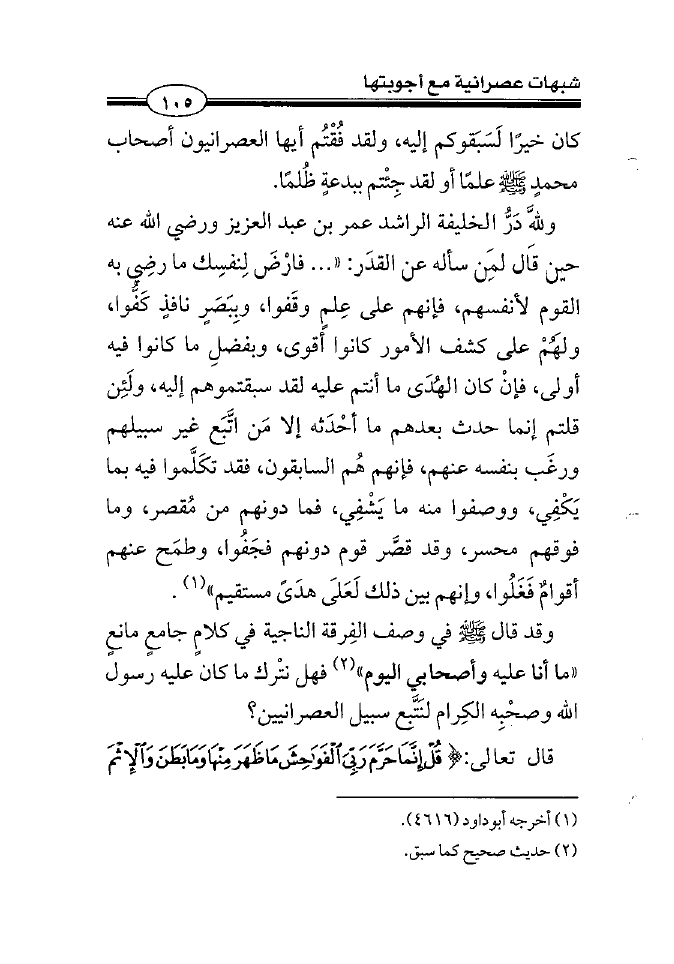 شبهات عصرانية مع أجوبتها
١٠٥
كان خيرًا لَسَبَقوكم إليه، ولقد فُقْتُم أيها العصرانيون أصحاب
محمدٍ ﷺ علمًا أو لقد جِئْتم ببدعةٍ ظُلمًا.
وللَّهِ دَرُّ الخليفة الراشد عمر بن عبد العزيز ورضي الله عنه
حين قال لمَن سأله عن القدَر: «... فارْضَ لِنفسِك ما رضِي به
القوم لأنفسهم، فإنهم على عِلمٍ وقَفوا، وبِبَصَرٍ نافذٍ كَفُّوا،
ولهُمْ على كشف الأمور كانوا أقوى، وبفضلِ ما كانوا فيه
أولى، فإنْ كان الهُدَى ما أنتم عليه لقد سبقتموهم إليه، ولَئِن
قلتم إنما حدث بعدهم ما أحْدَثه إلا مَن اتَّبَع غير سبيلهم
ورغَب بنفسه عنهم، فإنهم هُم السابقون، فقد تكلَّموا فيه بما
يَكْفِي، ووصفوا منه ما يَشْفِي، فما دونهم من مُقصر، وما
فوقهم محسر، وقد قصَّر قوم دونهم فجَفُوا، وطمَح عنهم
أقوامٌ فغَلُوا، وإنهم بين ذلك لَعَلَى هدَىً مستقيم»(١) .
وقد قال ﷺ في وصف الفِرقة الناجية في كلامٍ جامعٍ مانعٍ
«ما أنا عليه وأصحابي اليوم»(٢) فهل نتْرك ما كان عليه رسول
الله وصحْبِه الكِرام لنَتَّبع سبيل العصرانيين؟
قال تعالى: ﴿ قُلْ إِنَّمَا حَرَّمَ رَبِّىَ ٱلْفَوَٰحِشَ مَا ظَهَرَ مِنْهَا وَمَا بَطَنَ وَٱلْإِثْمَ
(١) أخرجه أبو داود (٤٦١٦).
(٢) حديث صحيح كما سبق.